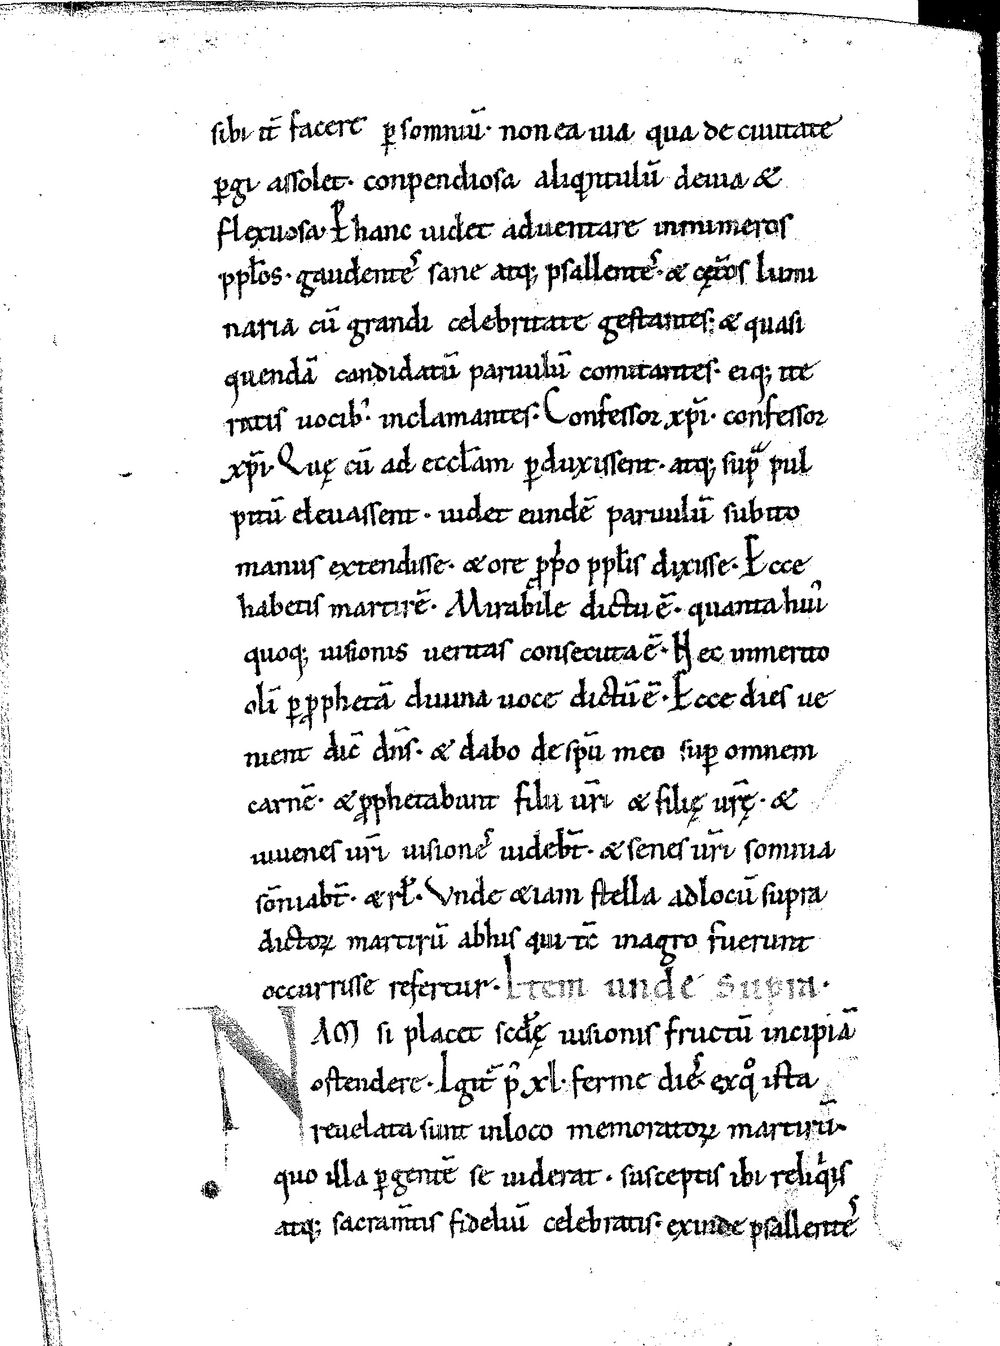 sibi it̄ facere ꝑ somniū· non ea uia qua de ciuitate
ꝑgi assolet· conpendiosa aliqͣntulū deuia &
flexuosa· Ꝑ hanc uidet aduentare innumeros
ppl̄os· gaudentes sane atq; psallentes· & cęreos lumi
naria cū grandi celebritate gestantes; & quasi
quendā candidatū paruulū comitantes· eiq; ite
ratis uocib; inclamantes· Confessor xp̄i· confessor
xp̄i· Quę cū ad eccl̄am ꝑduxissent· atq; supͣ pul
pitū eleuassent· uidet eundē paruulū subito
manus extendisse· & ore ꝓp̍o ppl̄is dixisse· Ecce
habetis martirē· Mirabile dictu ē· quanta hui᷒
quoq; uisionis ueritas consecuta ē· Nec inmerito
olī ꝑ ꝓphetā diuina uoce dictū ē· Ecce dies ue
nient dic̄ dn̄s· & dabo de sp̄u meo suꝑ omnem
carnē· & ꝓphetabunt filii ur̄i & filię ur̄ę· &
iuuenes ur̄i uisiones uideb̄t· & senes ur̄i somnia
sōniab̄t· & rl̄· Vnde &iam stella ad locū supra
dictoꝝ martirū ab his qui tc̄ in agro fuerunt
occurrisse refertur· Item unde supra·
NAM si placet scd̄ę uisionis fructū incipiā
ostendere· Igit̄ p᷒ xl· ferme dies ex qͦ ista
reuelata sunt in loco memoratoꝝ martirū·
quo illa ꝑgentē se uiderat· susceptis ibi reliqͥis
atq; sacram̄tis fideliū celebratis· exinde psallentes